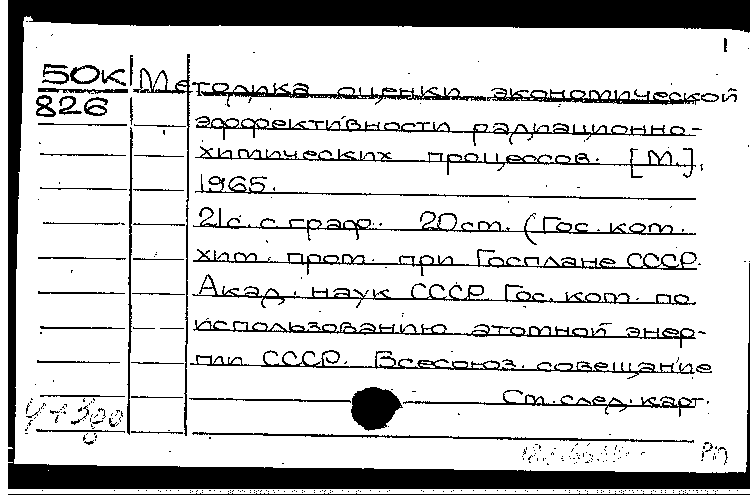 1
50К Методика оценки экономической
826 эффективности радиационно-
химических процессов. [М.],
1965.
21с. с граф. 20см. (Гос. ком.
хим. пром. при Госплане СССР.
Акад. наук СССР. Гос. ком. по
использованию атомной энер-
гии СССР. Всесоюз. совещание
См. след. карт.
РП